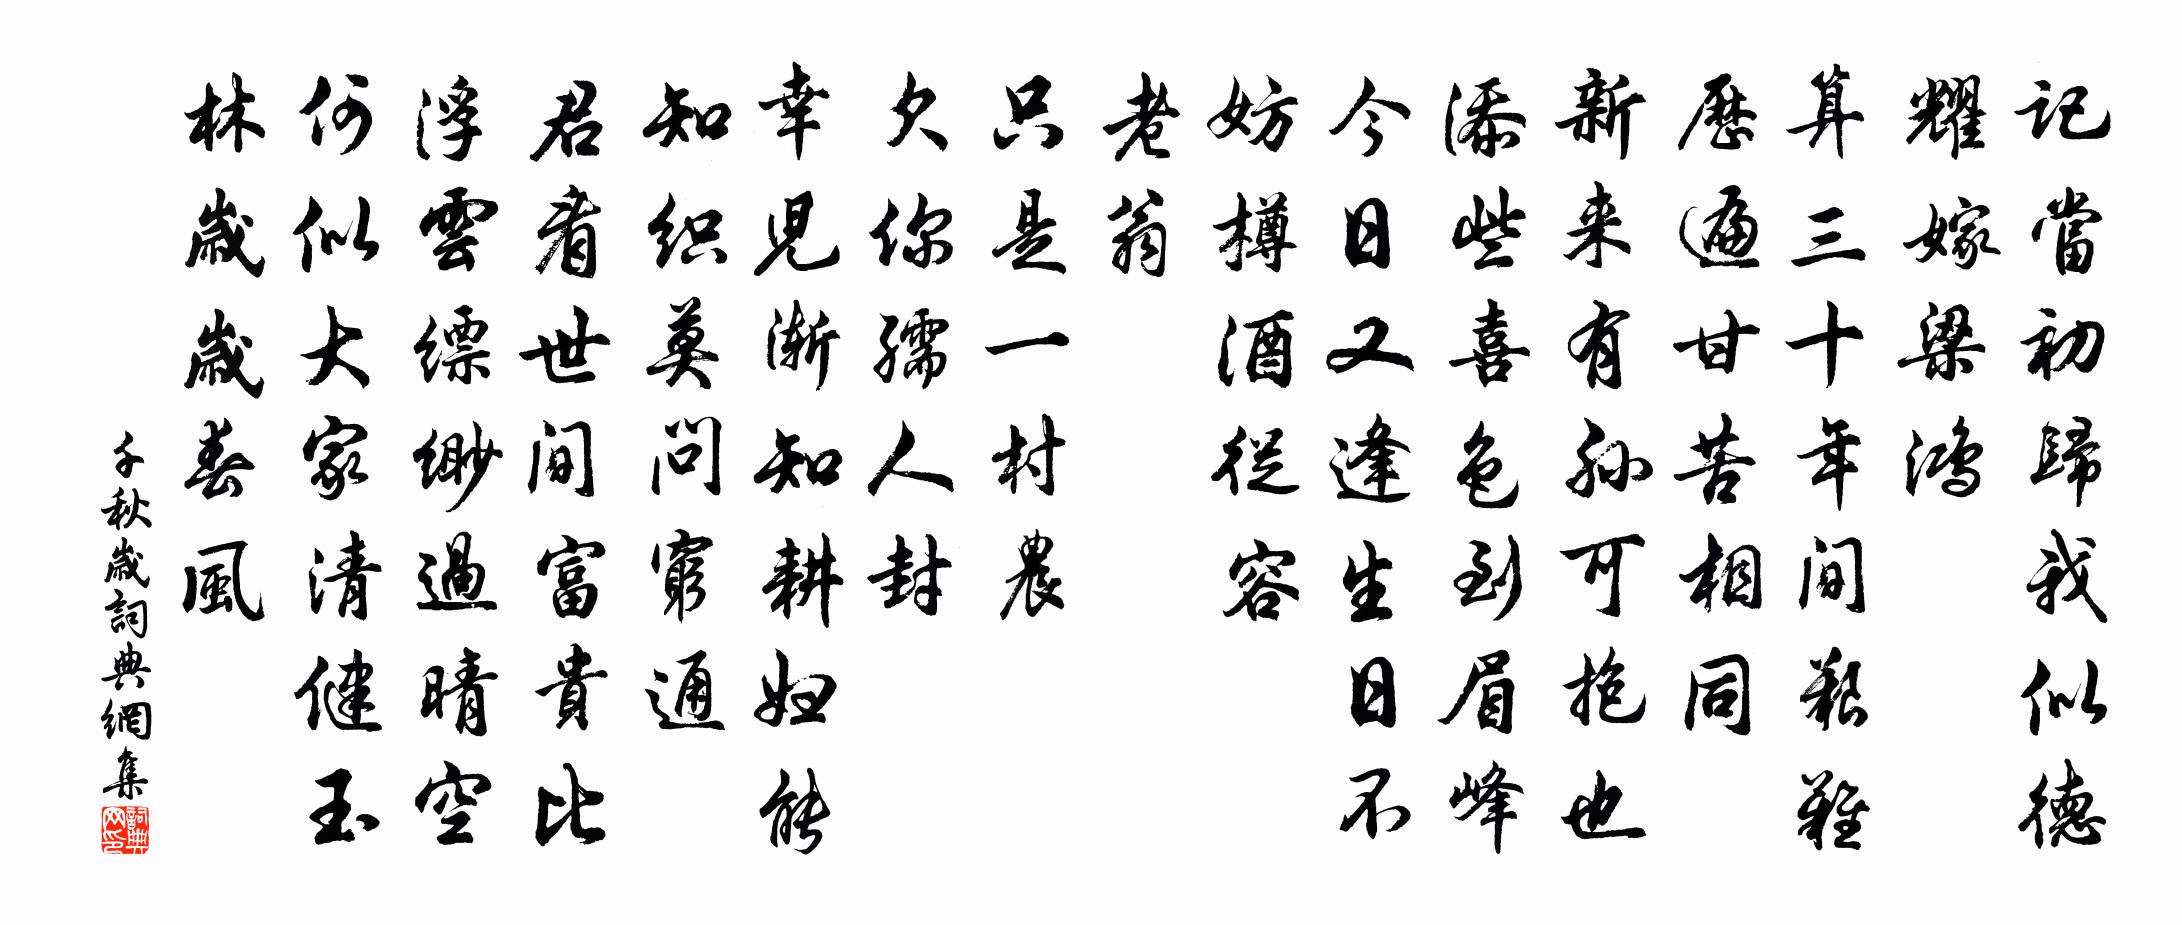 記當初歸我似德
耀嫁梁鸿
算三十年间艱難
歷遍甘苦相同
新来有孙可抱也
添些喜色到眉峰
今日又逢生日不
妨樽酒從容
老翁
只是一村農
欠你孺人封
幸児渐知耕妞能
知织莫问窮通
君看世间富貴比
浮雲縹缈過晴空
何似大家清健玉
林歲歲春風
千秋歲詞典網集
詞典網印